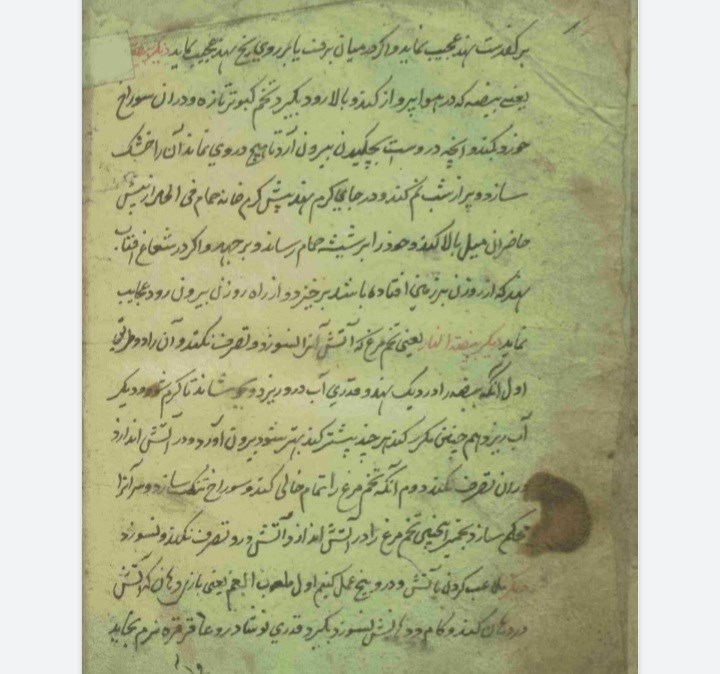 بر کفدست نهد عجیب نماید و اگر در میان برف یا بر روی یخ نهد عجیب نماید دیگر بیضه
یعنی بیضه که در هوا پرواز کند و بالا رود بگیرد تخم کبوتر تازه و در آن سوراخ
خورد کند و آنچه در وست بچکیدن بیرون آرد تا هیچ در وی نماند آن را خشک
سازد و پر از شب نم کند و در جای گرم نهد پیش گرم خانه حمام فی الحال از پیش
حاضران میل بالا کند و خود را بر شیشه حمام رساند و بر جهد و اگر در شعاع آفتاب
نهد که از روزن بر زمین افتاده باشد بر خیزد و از راه روزن بیرون رود عجایب
نماید دیگر بیضة النار یعنی تخم مرغ که آتش آنرا نسوزد و تصرف نکند و آن را دو طریق
اول آنکه بیضه را در دیک نهد و قدری آب در و ریزد و بجوشاند تا گرم شود و دیگر
آب ریزد هم چنین مکرر کند هر چند بیشتر کند بهتر شود بیرون آورد و در آتش اندازد
در آن تصرف نکند دوم آنکه تخم مرغ را تمام خالی کند و سوراخ تنک سازد و سر آنرا
محکم سازد بخمیر اینچنین تخم مرغ را در آتش اندازد و آتش در و تصرف نکند و نسوزد
ملاعب کردن با آتش و در و پنج عمل کنیم اول ملعوب الفم یعنی بازی دهان که آتش
در دهان کند و کام و دهانش نسوزد بگیرد قدری نوشادر و عاقرقره نرم بخاید